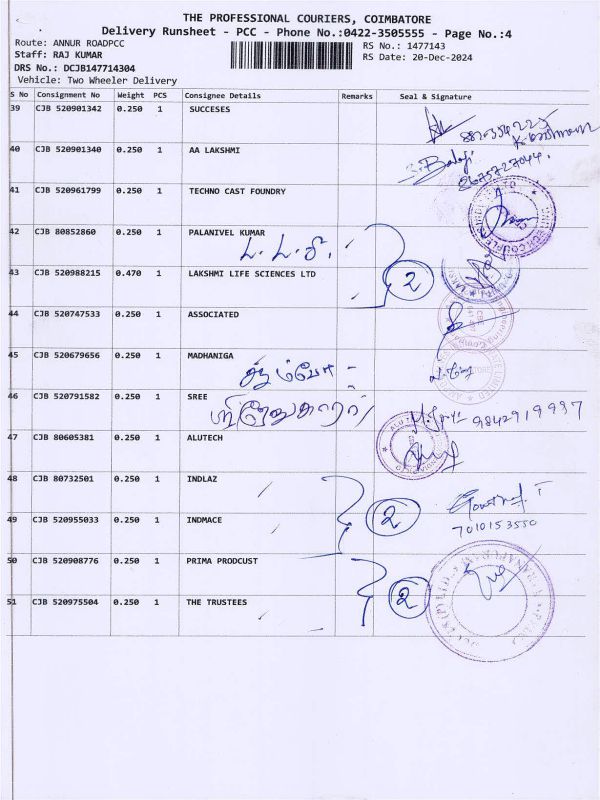 THE PROFESSIONAL COURIERS, COIMBATORE
Delivery Runsheet - PCC - Phone No.:0422-3505555 - Page No.:4
Route: ANNUR ROADPCC
RS No.: 1477143
Staff: RAJ KUMAR
RS Date: 20-Dec-2024
DRS No.: DCJB147714304
Vehicle: Two Wheeler Delivery
S No Consignment No Weight PCS Consignee Details Remarks Seal & Signature
39 CJB 520901342 0.250 1 SUCCESES
40 CJB 520901340 0.250 1 AA LAKSHMI
41 CJB 520961799 0.250 1 TECHNO CAST FOUNDRY
42 CJB 80852860 0.250 1 PALANIVEL KUMAR
43 CJB 520988215 0.470 1 LAKSHMI LIFE SCIENCES LTD 2
44 CJB 520747533 0.250 1 ASSOCIATED
45 CJB 520679656 0.250 1 MADHANIGA
46 CJB 520791582 0.250 1 SREE 9842919997
47 CJB 80605381 0.250 1 ALUTECH
48 CJB 80732501 0.250 1 INDLAZ
49 CJB 520955033 0.250 1 INDMACE 2 7010153550
50 CJB 520908776 0.250 1 PRIMA PRODCUST
51 CJB 520975504 0.250 1 THE TRUSTEES 2